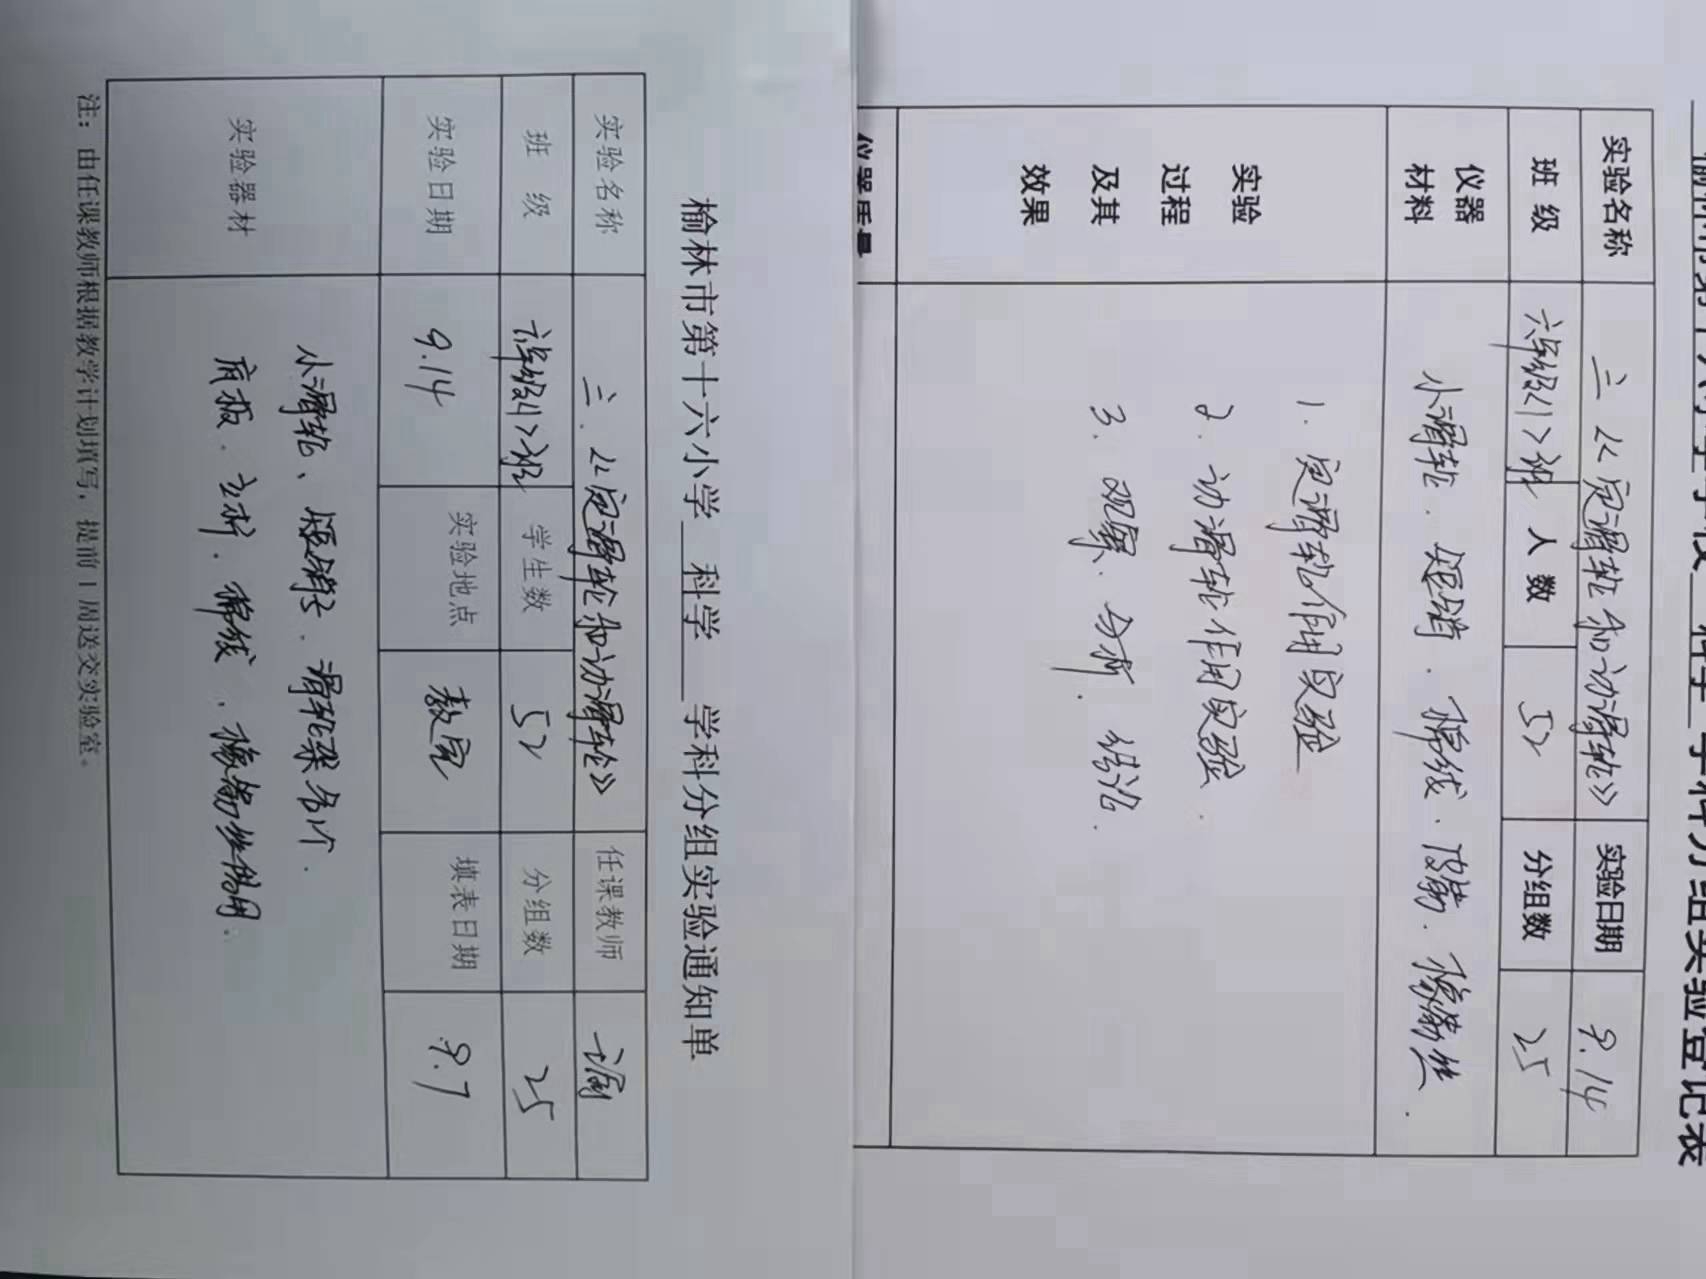 榆林市第十六小学 科学 学科分组实验登记表
实验名称 二《定滑轮和动滑轮》 实验日期 9.14
班 级 六年级<1>班 人 数 52 分组数 25
仪器材料 小滑轮.短销.棉线.皮筋.橡筋丝.
实验过程及其效果
1. 定滑轮作用实验
2. 动滑轮作用实验.
3. 观察.分析.结论.
榆林市第十六小学 科学 学科分组实验通知单
实验名称 二.《定滑轮和动滑轮》 任课教师
班 级 六年级<1>班 学生数 52 分组数 25
实验日期 9.14 实验地点 教室 填表日期 9.7
实验器材 小滑轮、短销子.滑轮架各1个.
底板.立杆.棉线.橡筋
注：由任课教师根据教学计划填写，提前1周送交实验室。